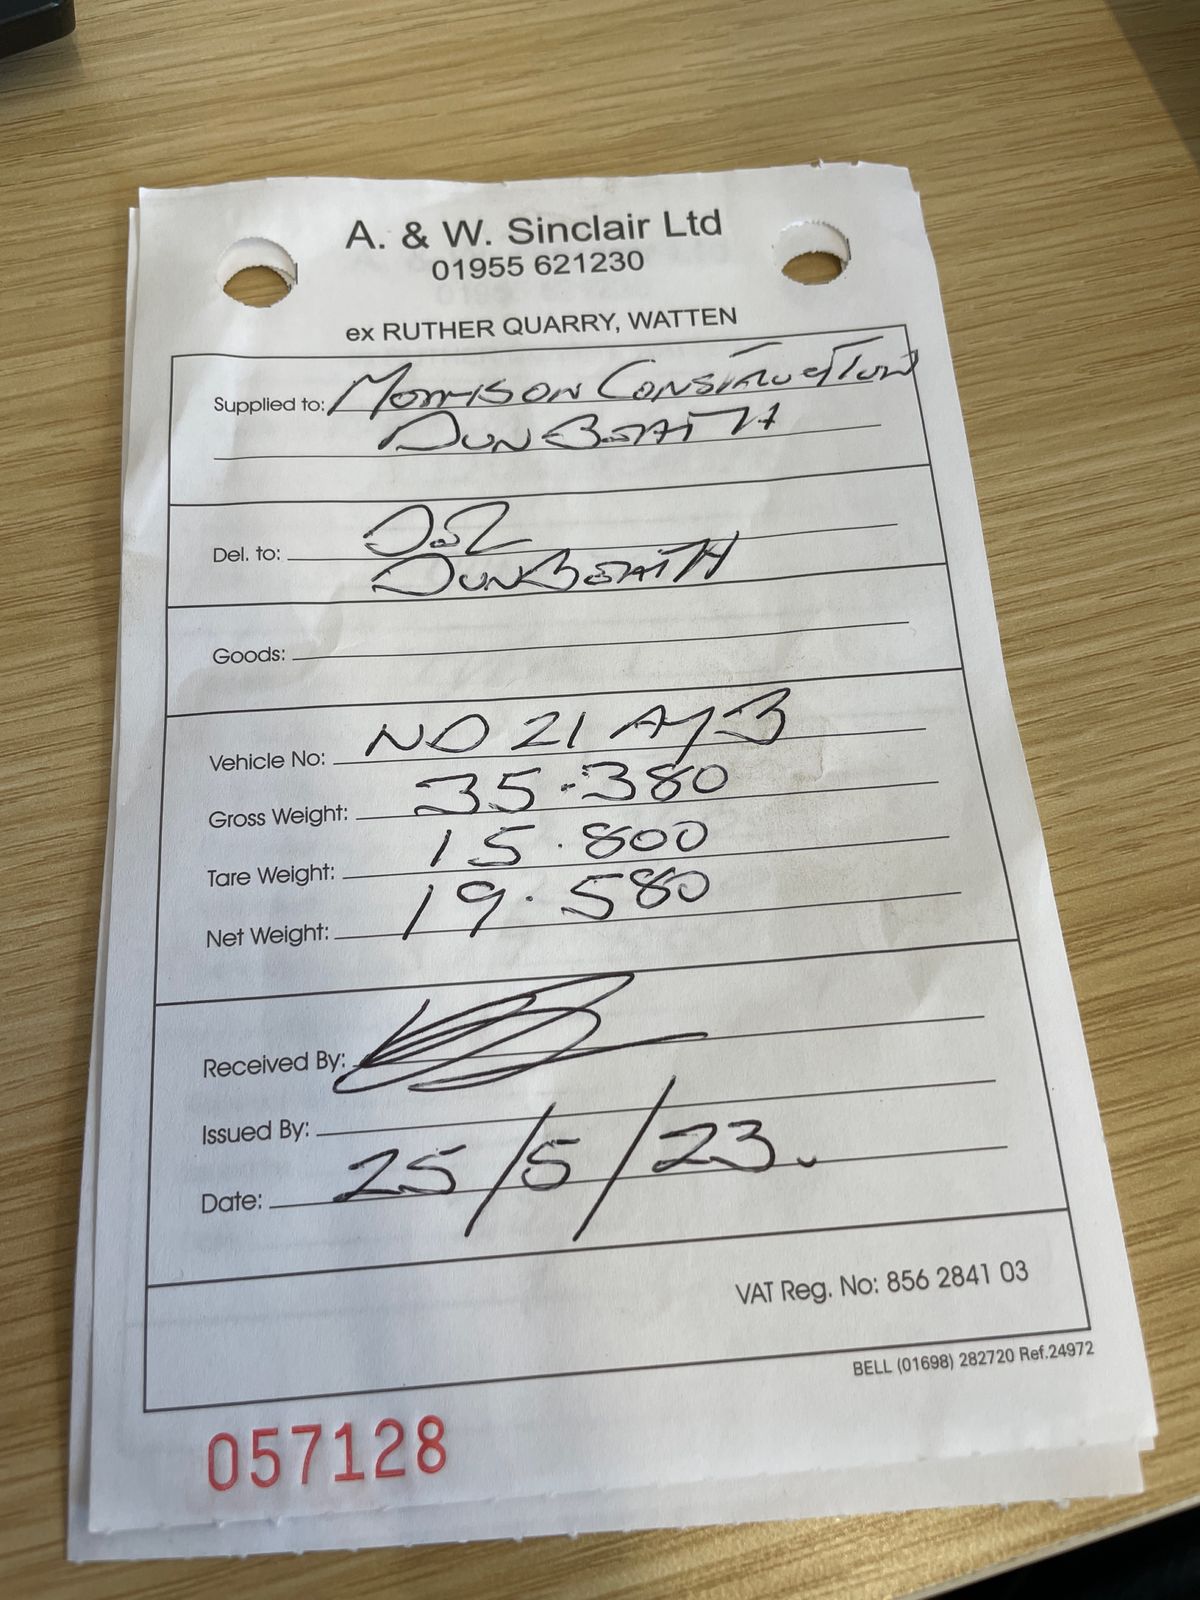 A. & W. Sinclair Ltd
01955 621230
ex RUTHER QUARRY, WATTEN
Supplied to: MORRISON CONSTRUCTION
DUNBEATH
Del. to:
DUNBEATH
Goods:
Vehicle No: ND 21 AYB
Gross Weight: 35.380
Tare Weight: 15.800
Net Weight: 19.580
Received By:
Issued By:
Date: 25/5/23.
VAT Reg. No: 856 2841 03
BELL (01698) 282720 Ref.24972
057128